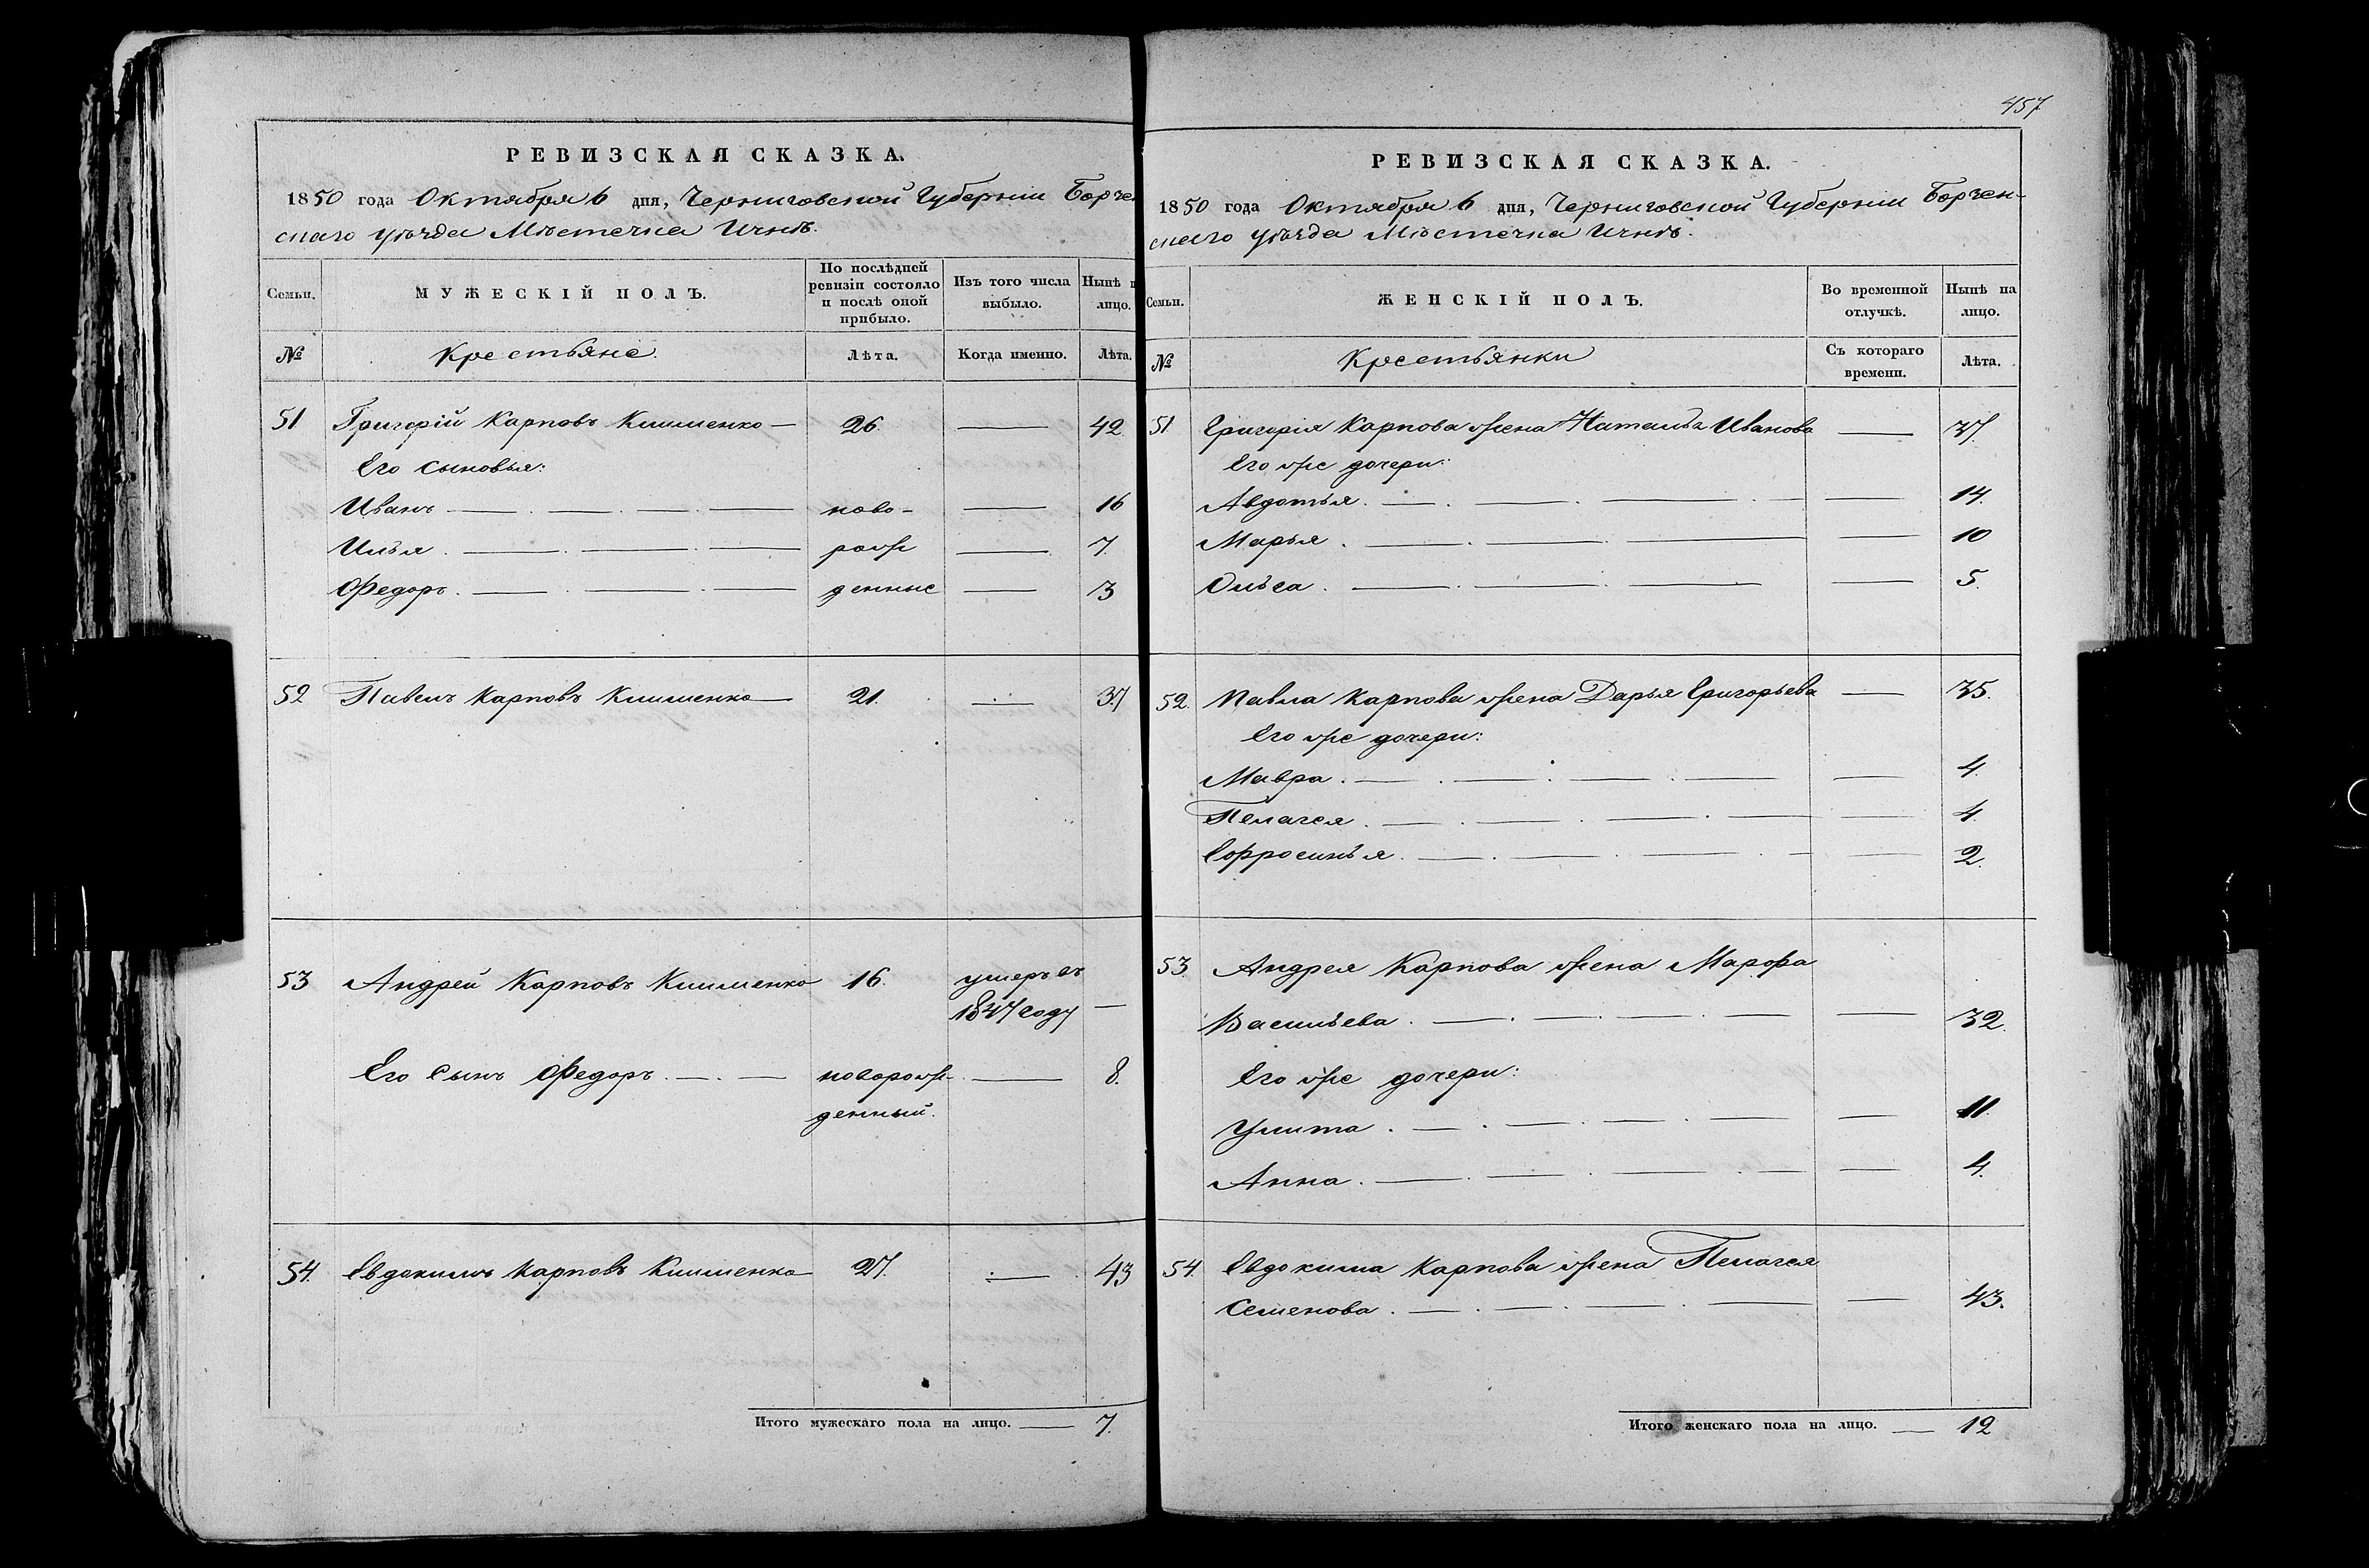 РЕВИЗСКАЯ СКАЗКА.
1850 года Октября 6 дня, Черниговской Губерніи Борзен
скаго уѣзда Мѣстечка Ичнѣ.
Семьи. МУЖЕСКІЙ ПОЛЪ. По послѣдней ревизіи состояло и послѣ оной прибыло. Изъ того числа выбыло. Нынѣ н лицо.
№ Крестьяне. Лѣта. Когда именно. Лѣта.
51 Григорій Карповъ Клименко — 26. — 42
Его сыновья:
Иванъ — ново- — 16
Илья — рож — 7.
Ѳедоръ — денные — 3
52 Павелъ Карповъ Клименко — 21. — 37
53 Андрей Карповъ Клименко 16. умеръ въ
1847 году —
Его сынъ Ѳедоръ — новорож- — 8.
денный.
54. Евдокимъ Карповъ Клименко 27. — 43
Итого мужескаго пола на лицо. — 7.
457
РЕВИЗСКАЯ СКАЗКА.
1850 года Октября 6 дня, Черниговской Губерніи Борзен-
скаго уѣзда Мѣстечка Ичнѣ.
Семьи. ЖЕНСКІЙ ПОЛЪ. Во временной отлучкѣ. Нынѣ на лицо.
№ Крестьянки Съ котораго времени. Лѣта.
51 Григорія Карпова жена Наталья Иванова — 37.
Его же дочери:
Авдотья — 14.
Марья — 10
Ольга — 5.
52. Павла Карпова жена Дарья Григорьева — 35.
Его же дочери:
Мавра — 4.
Пелагея — 4.
Ефросинья — 2.
53. Андрея Карпова жена Марфа
Васильева — 32.
Его же дочери:
Улита — 11.
Анна — 4.
54. Евдокима Карпова жена Пелагея
Семенова — 43.
Итого женскаго пола на лицо. — 12